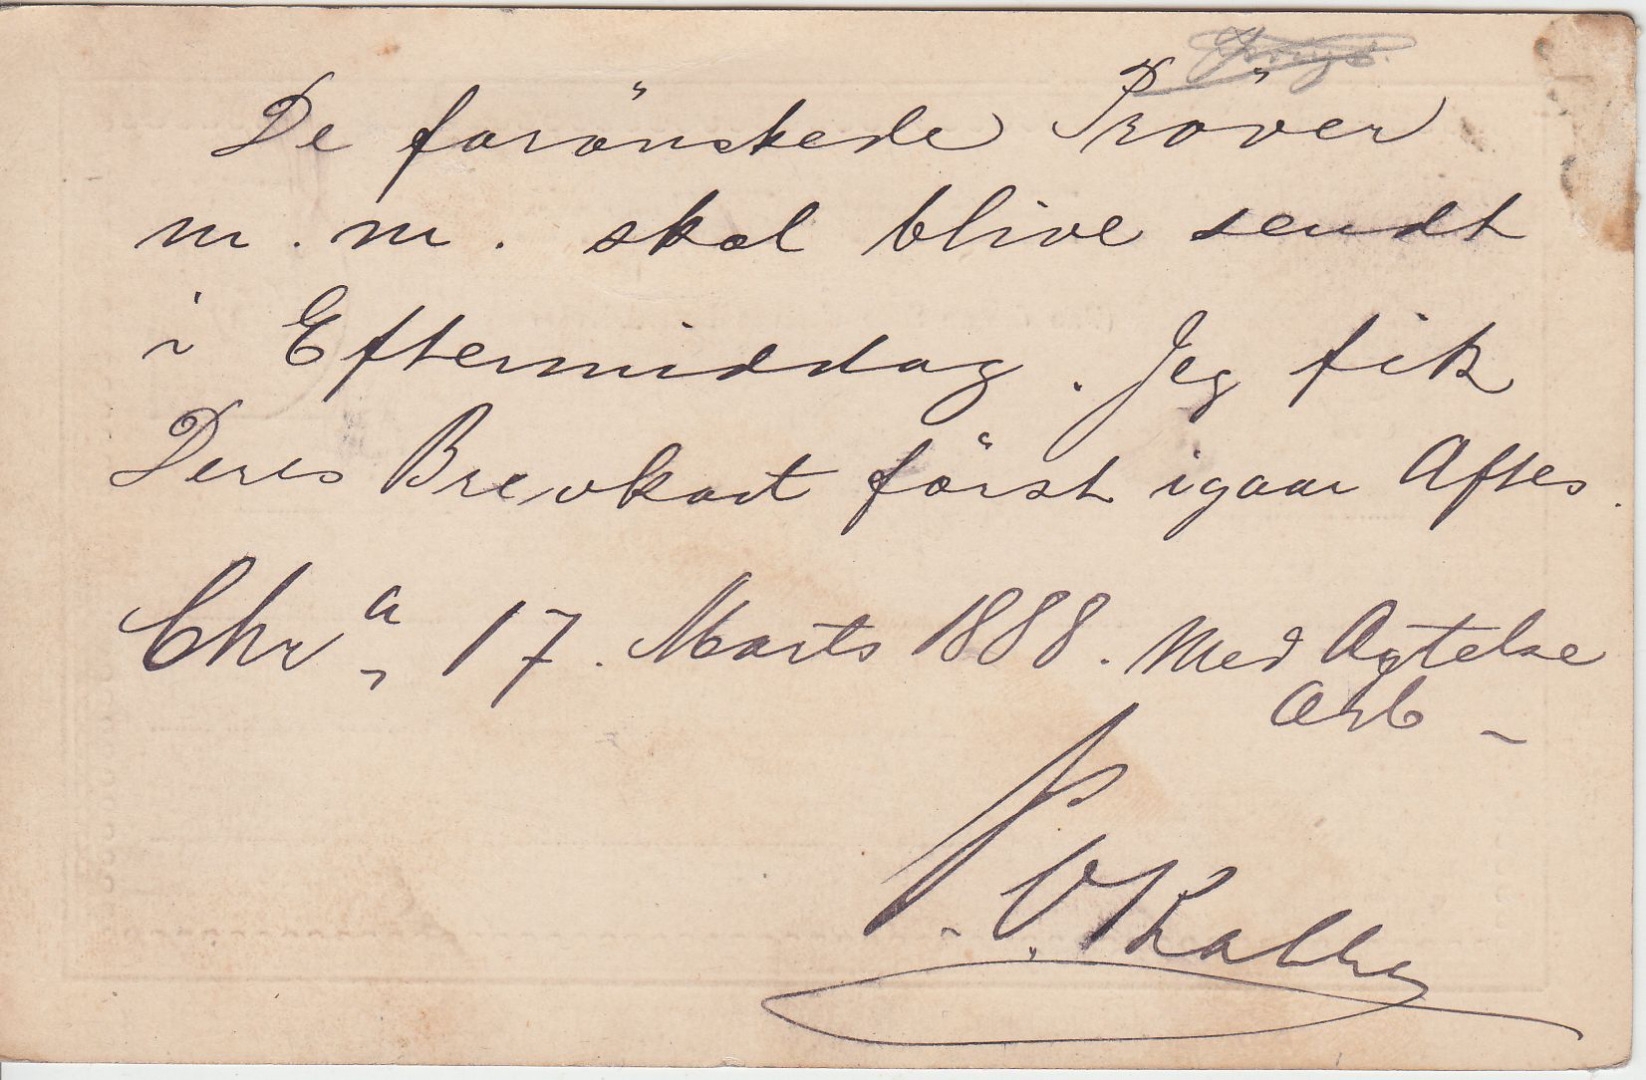 De forönskede Pröver
m. m. skal blive sendt
i Eftermiddag. Jeg fik
Deres Brevkort först igaar Aftes.
Chr.a, 17. Marts 1888. Med Agtelse
Arb -